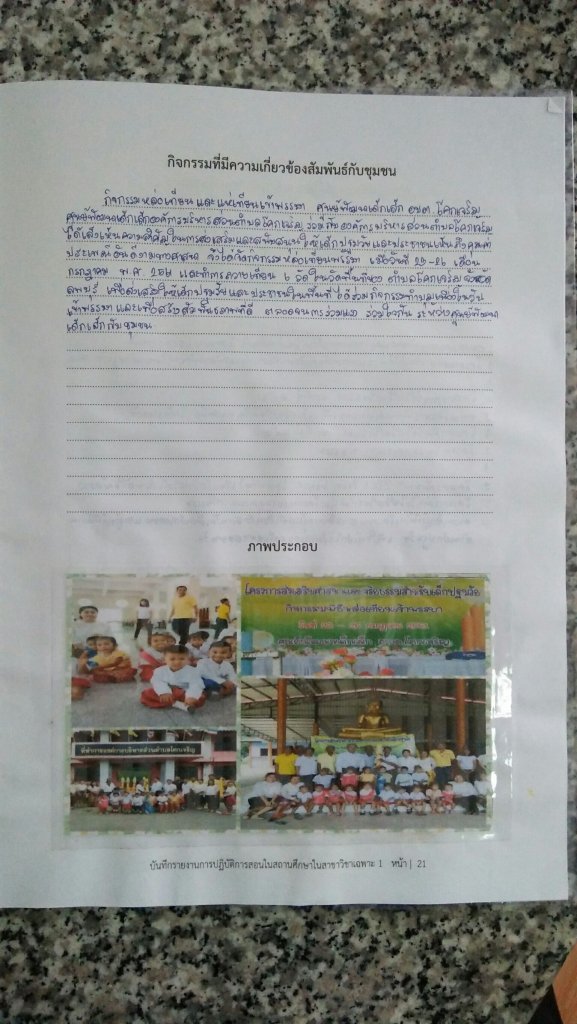 กิจกรรมที่มีความเกี่ยวข้องสัมพันธ์กับชุมชน
กิจกรรมหล่อเทียนและแห่เทียนเข้าพรรษา ศูนย์พัฒนาเด็กเล็ก อบต. โคกเจริญ
ศูนย์พัฒนาเด็กเล็กองค์การบริหารส่วนตำบลโคกเจริญ ร่วมกับองค์การบริหารส่วนตำบลโคกเจริญ
ได้เล็งเห็นความสำคัญในการส่งเสริมและสนับสนุนให้เด็กปฐมวัยและประชาชนเห็นถึงคุณค่า
ประเพณีอันดีงามทางศาสนา จึงได้จัดกิจกรรมหล่อเทียนพรรษา เมื่อวันที่ 25-26 เดือน
กรกฎาคม พ.ศ. และทำการถวายเทียน 6 วัด ในวัดพื้นที่ของ ตำบลโคกเจริญ จังหวัด
ลพบุรี เพื่อส่งเสริมให้เด็กปฐมวัยและประชาชนในพื้นที่ ได้ร่วมกิจกรรมทำบุญเนื่องในวัน
เข้าพรรษา และเพื่อสร้างสัมพันธภาพที่ดี ตลอดจนการร่วมแรง ร่วมใจกัน ระหว่างศูนย์พัฒนา
เด็กเล็กกับชุมชน
ภาพประกอบ
โครงการส่งเสริมศาสนาและจริยธรรมสำหรับเด็กปฐมวัย
กิจกรรมหล่อเทียนเข้าพรรษา
ที่ทำการองค์การบริหารส่วนตำบลโคกเจริญ
บันทึกรายงานการปฏิบัติการสอนในสถานศึกษาในสาขาวิชาเฉพาะ 1 หน้า | 21